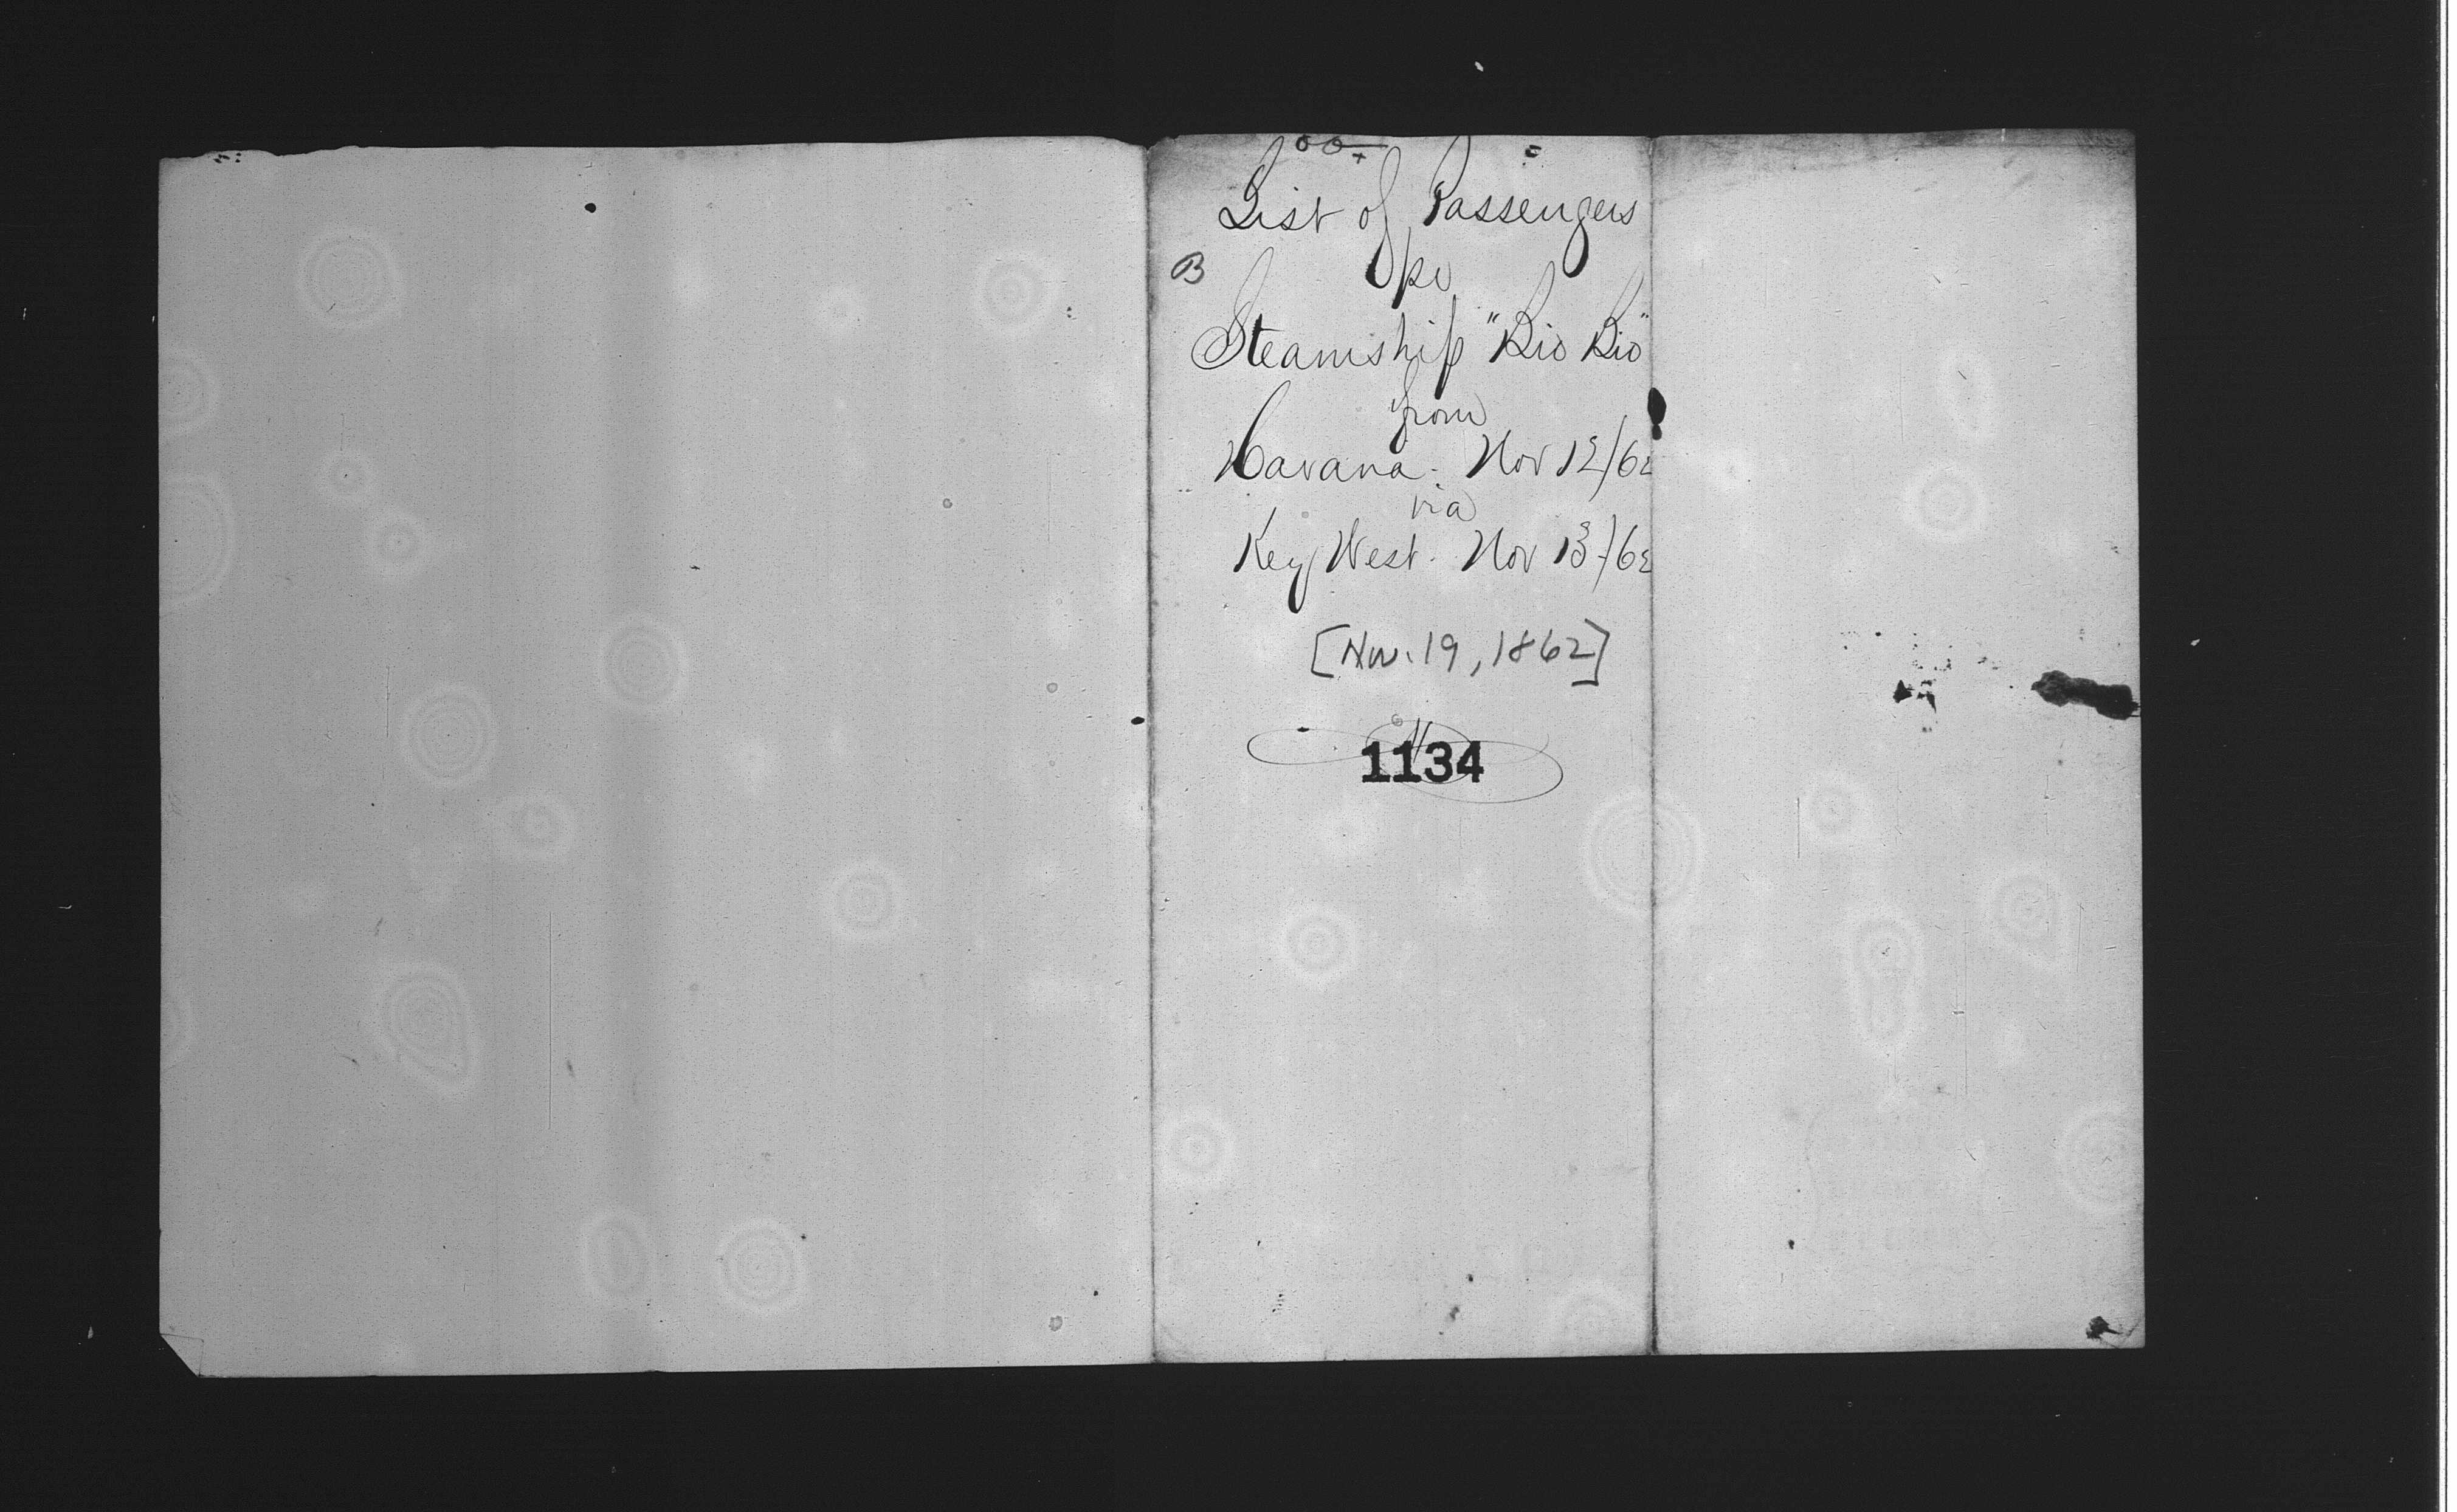 List of Passengers
B
pr
Steamship "Bio Bio"
from
Havana. Nov 12/62
via
Key West. Nov 13/62
[Nov. 19, 1862]
1134